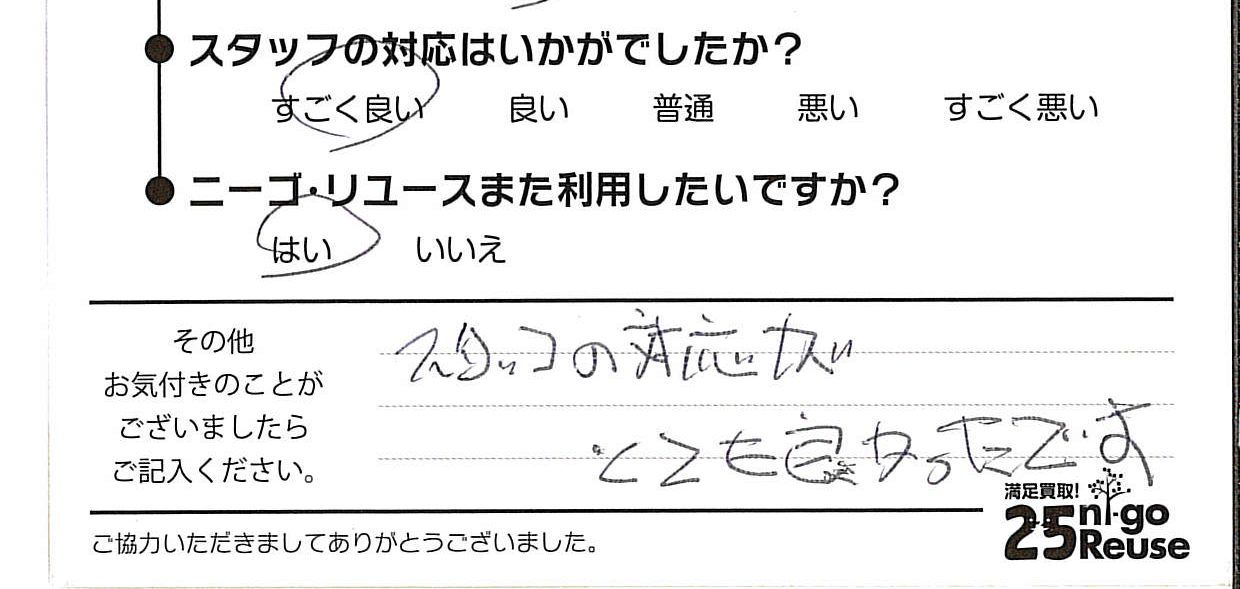 スタッフの対応はいかがでしたか？
すごく良い 良い 普通 悪い すごく悪い
ニーゴ・リユースまた利用したいですか？
はい いいえ
その他
お気付きのことが
ございましたら
ご記入ください。
スタッフの対応が
とても良かったです
満足買取!
25 ni-go
Reuse
ご協力いただきましてありがとうございました。